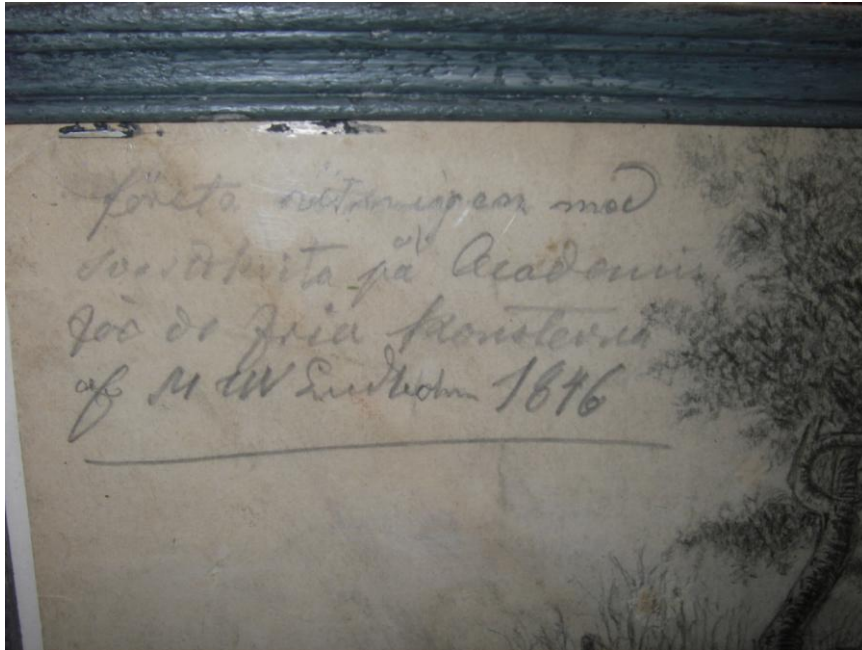 första ritningen med
svartkrita på Academin
för de fria konsterna
af M W 1846